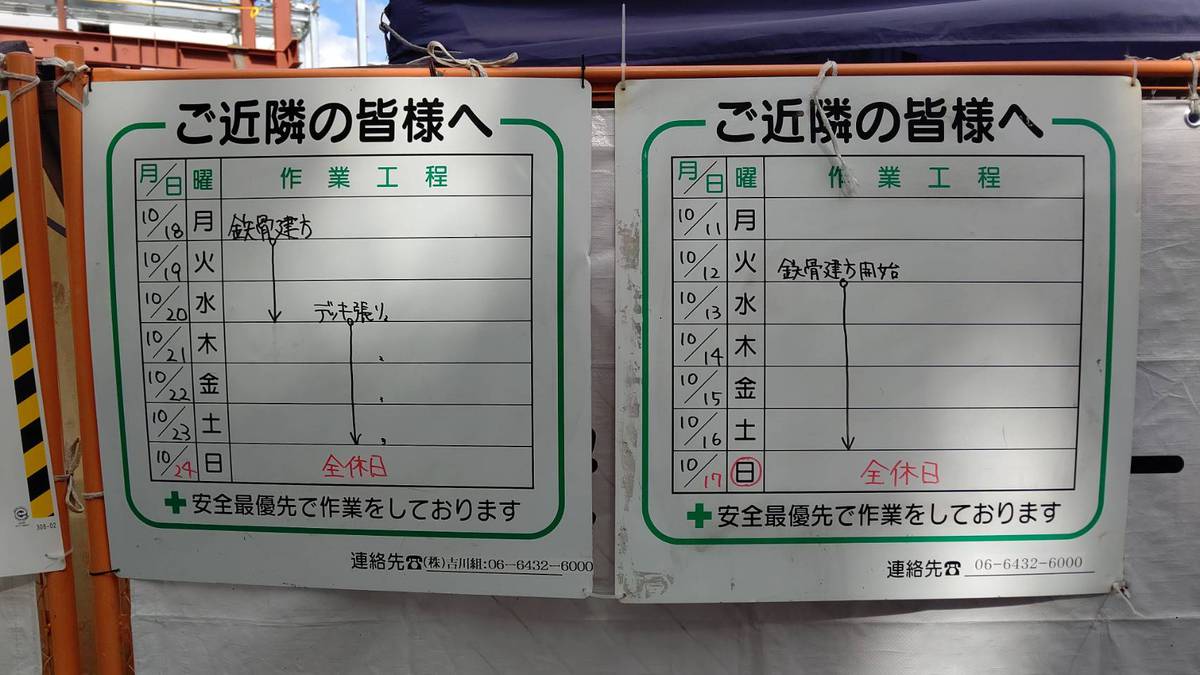 ご近隣の皆様へ
月/日 曜 作業工程
10/18 月 鉄骨建方
10/19 火
10/20 水 デッキ張り
10/21 木
10/22 金
10/23 土
10/24 日 全休日
安全最優先で作業をしております
連絡先☎(株)吉川組:06-6432-6000
308-02
ご近隣の皆様へ
月/日 曜 作業工程
10/11 月
10/12 火 鉄骨建方開始
10/13 水
10/14 木
10/15 金
10/16 土
10/17 日 全休日
安全最優先で作業をしております
連絡先☎ 06-6432-6000